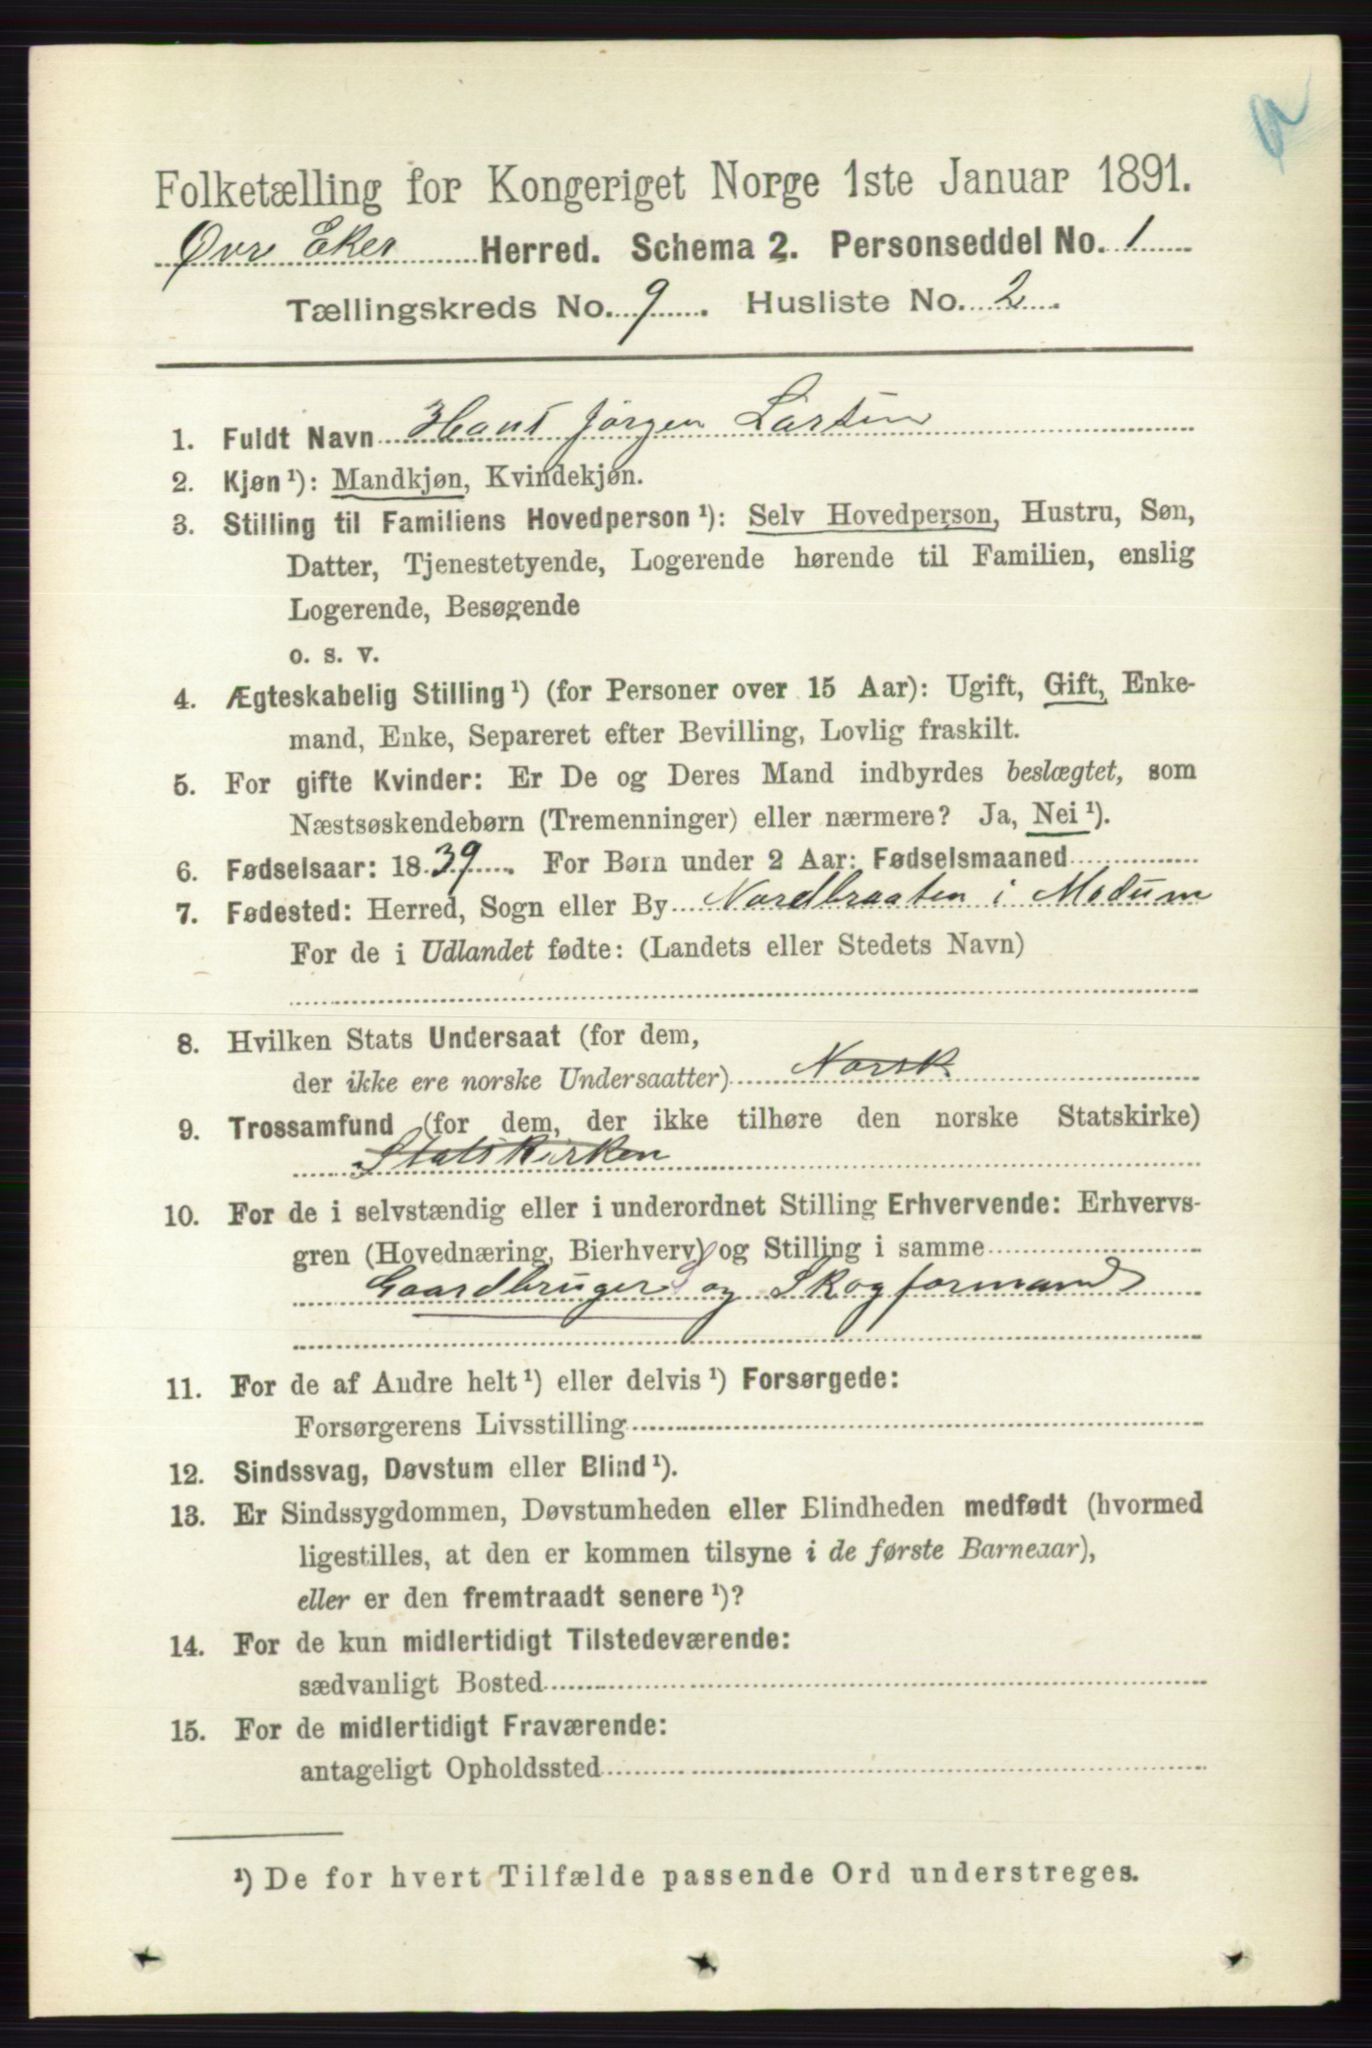 Folketælling for Kongeriget Norge 1ste Januar 1891.
Øvre Eker Herred. Schema 2. Personseddel No. 1
Tællingskreds No. 9. Husliste No. 2.
1. Fuldt Navn Hans Jørgen Larsen
2. Kjøn ¹): Mandkjøn, Kvindekjøn.
3. Stilling til Familiens Hovedperson ¹): Selv Hovedperson, Hustru, Søn,
Datter, Tjenestetyende, Logerende hørende til Familien, enslig
Logerende, Besøgende
o. s. v.
4. Ægteskabelig Stilling ¹) (for Personer over 15 Aar): Ugift, Gift, Enke-
mand, Enke, Separeret efter Bevilling, Lovlig fraskilt.
5. For gifte Kvinder: Er De og Deres Mand indbyrdes beslægtet, som
Næstsøskendebørn (Tremenninger) eller nærmere? Ja, Nei ¹).
6. Fødselsaar: 1839. For Børn under 2 Aar: Fødselsmaaned
7. Fødested: Herred, Sogn eller By Nordbraaten i Modum
For de i Udlandet fødte: (Landets eller Stedets Navn)
8. Hvilken Stats Undersaat (for dem,
der ikke ere norske Undersaatter) Norsk
9. Trossamfund (for dem, der ikke tilhøre den norske Statskirke)
Statskirken
10. For de i selvstændig eller i underordnet Stilling Erhvervende: Erhvervs-
gren (Hovednæring, Bierhverv) og Stilling i samme
Gaardbruger og Skogformand
11. For de af Andre helt ¹) eller delvis ¹) Forsørgede:
Forsørgerens Livsstilling
12. Sindssvag, Døvstum eller Blind ¹).
13. Er Sindssygdommen, Døvstumheden eller Blindheden medfødt (hvormed
ligestilles, at den er kommen tilsyne i de første Barneaar),
eller er den fremtraadt senere ¹)?
14. For de kun midlertidigt Tilstedeværende:
sædvanligt Bosted
15. For de midlertidigt Fraværende:
antageligt Opholdssted
¹) De for hvert Tilfælde passende Ord understreges.